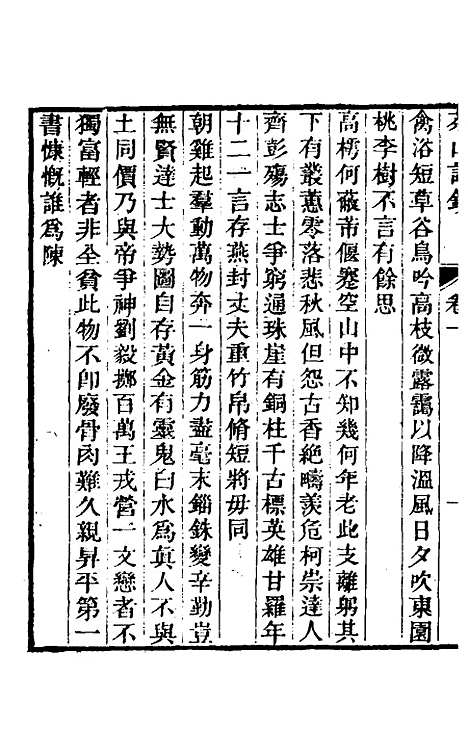 山詩鈔 卷一 一
禽浴短草谷鳥吟高枝微露靄以降溫風日夕吹東園
桃李樹不言有餘思
高樗何蔽芾偃蹇空山中不知幾何年老此支離躬其
下有叢蕙零落悲秋風但怨古香絶疇羨危柯崇達人
齊彭殤志士爭窮通珠崖有銅柱千古標英雄甘羅年
十二一言存燕封丈夫重竹帛脩短將毋同
朝雞起羣動萬物奔一身筋力盡毫末錙銖變辛勤豈
無賢達士大勢圖自存黃金有靈鬼白水爲眞人不與
土同價乃與帝爭神劉毅擲百萬王戎營一文戀者不
獨富輕者非全貧此物不卽廢骨肉難久親昇平第一
書慷慨誰爲陳